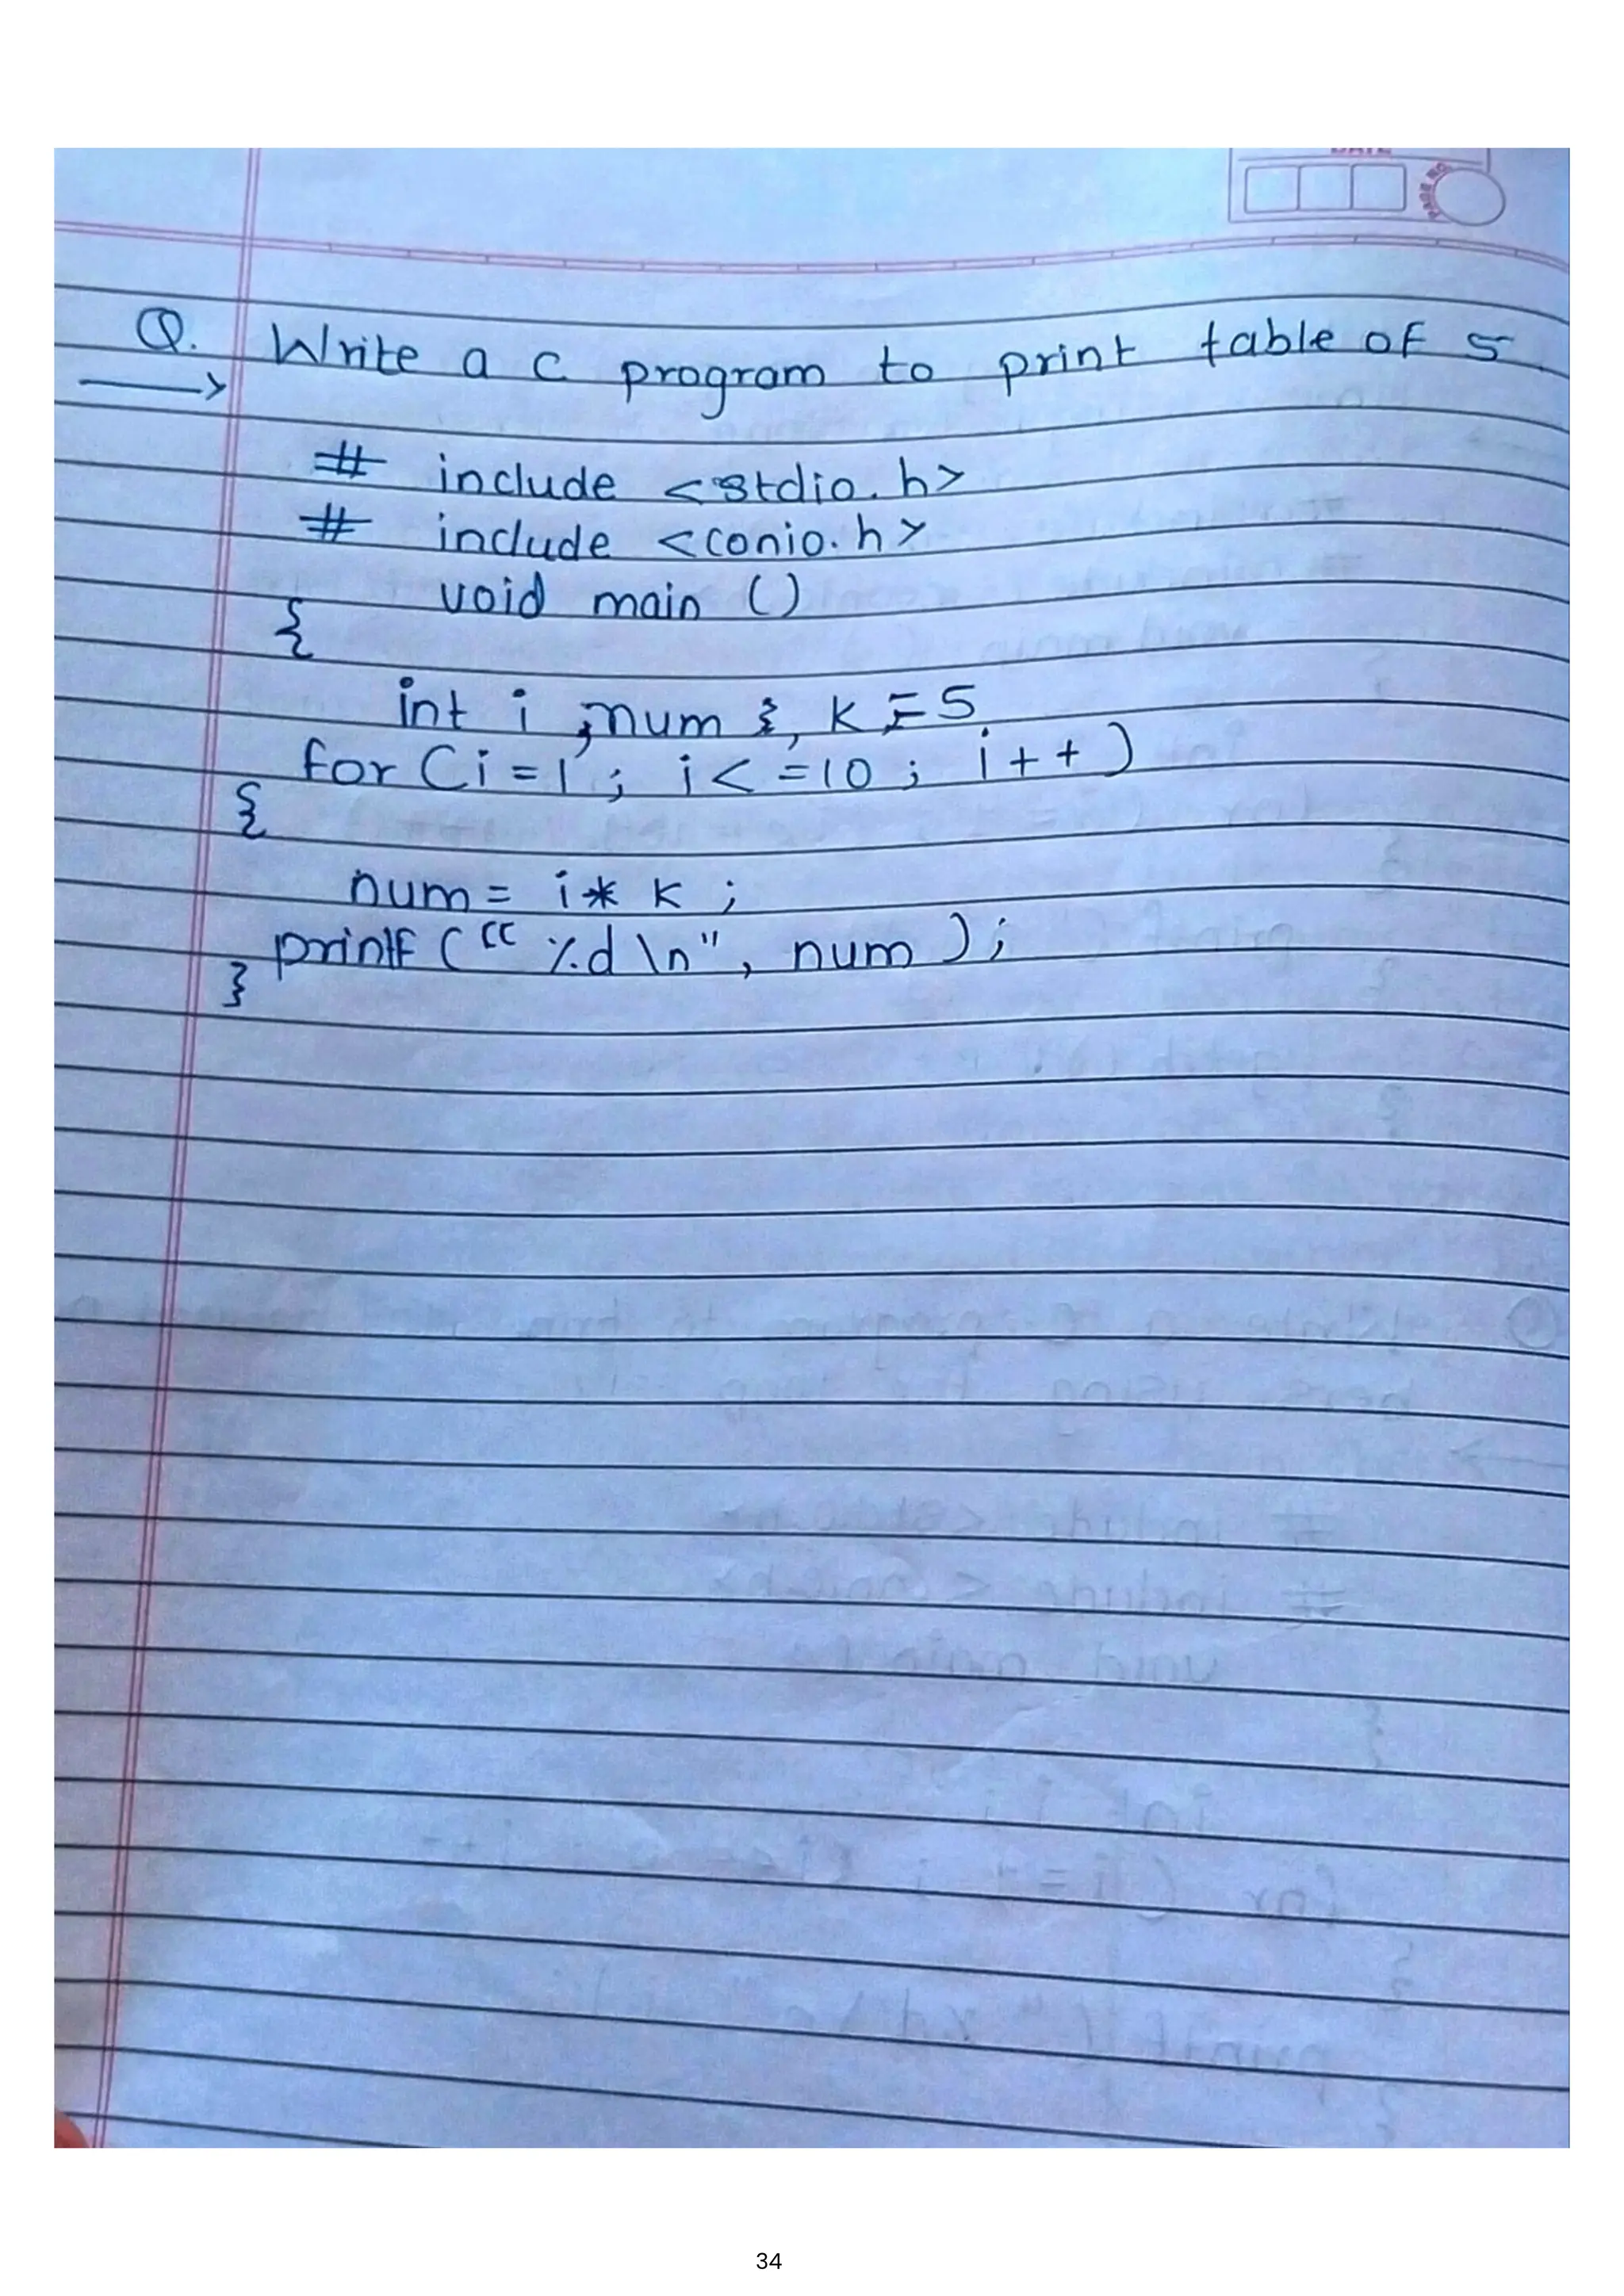 DATE
PAGE NO.
Q. Write a c program to print table of 5
# include <stdio.h>
# include <conio.h>
void main ()
{
int i , num , k = 5
for ( i = 1 ; i < = 10 ; i + + )
{
num = i * k ;
printf ( “ %d \n" , num ) ;
}
34